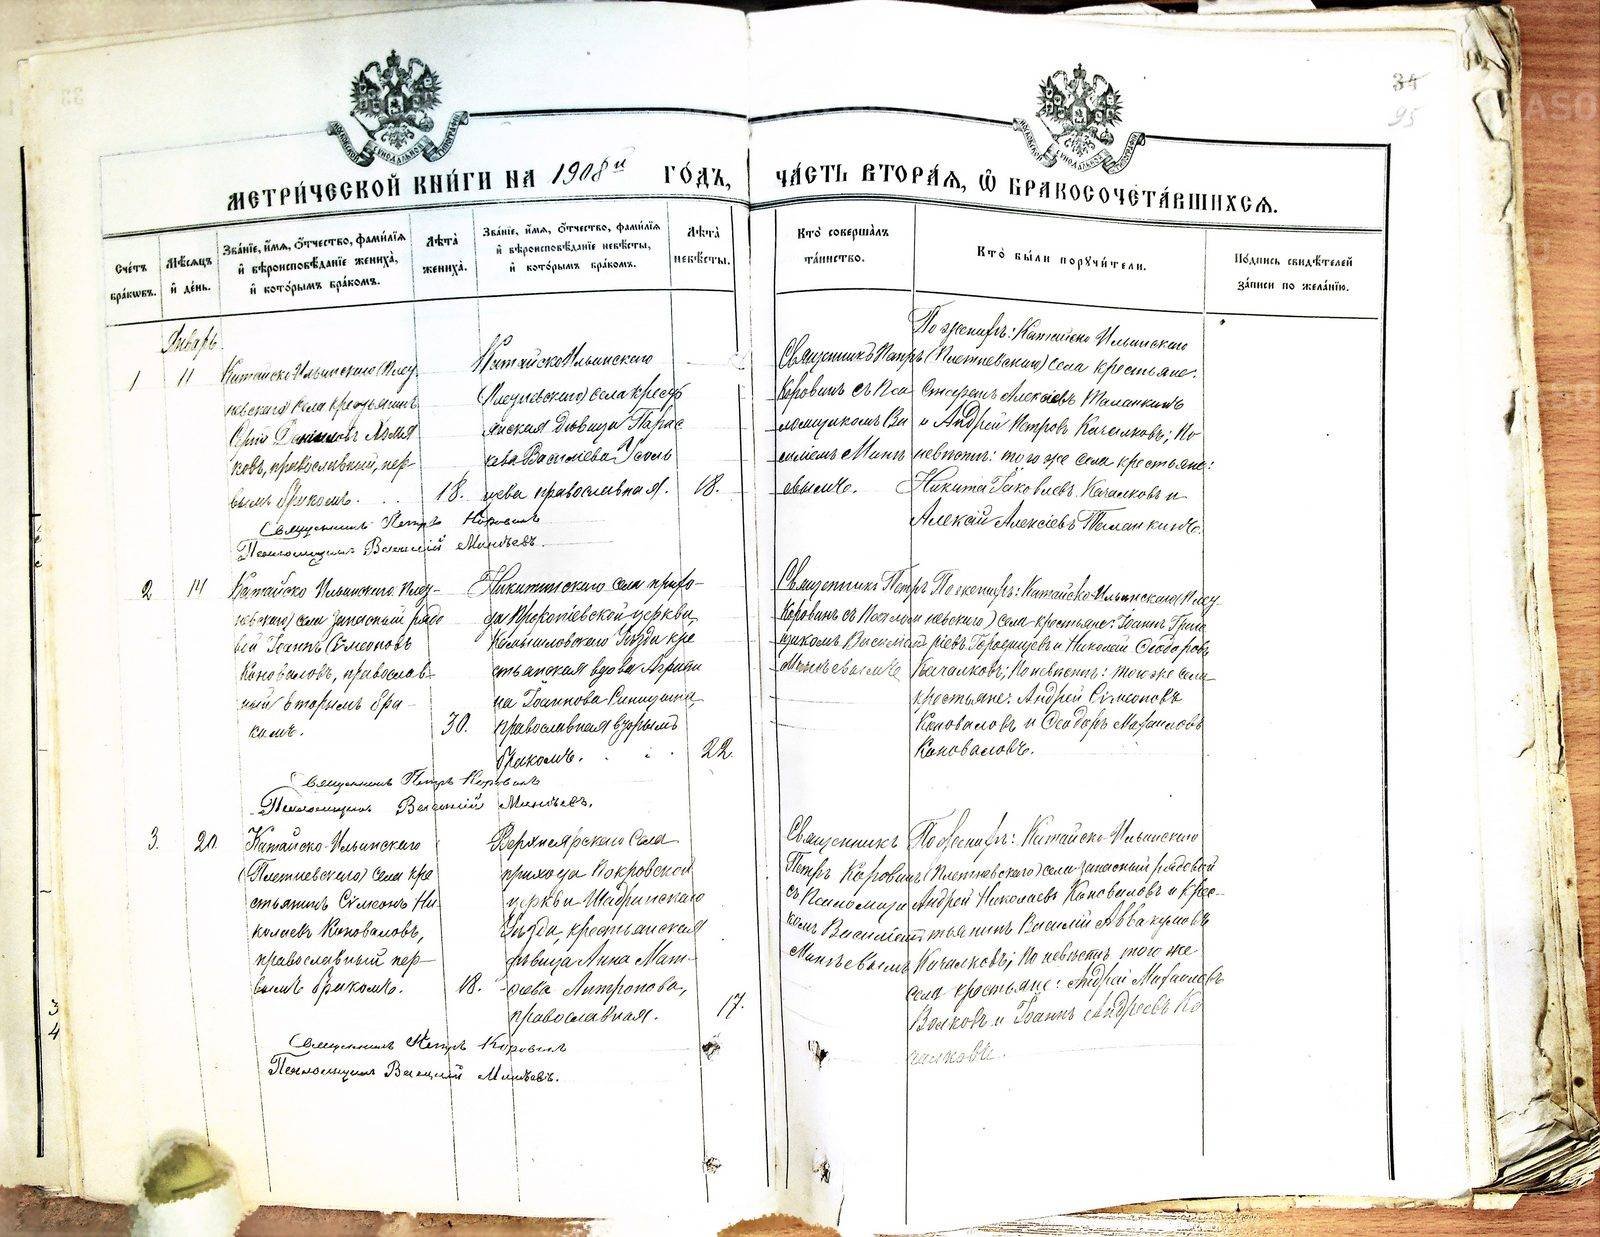 34
95
МОСКОВСКОЙ СѴНОДАЛЬНОЙ ТИПОГРАФІИ
МОСКОВСКОЙ СѴНОДАЛЬНОЙ ТИПОГРАФІИ
МЕТРИ́ЧЕСКОЙ КНИ́ГИ НА 1908й ГО́ДЪ,
ЧА́СТЬ ВТОРА́Ѧ, Ѽ БРАКОСОЧЕТА́ВШИХСѦ.
Сче́тъ бра́кѡвъ.
Мѣ́сѧцъ и҆ де́нь.
Зва́нїе, и҆́мѧ, ѻ҆́тчество, фами́лїѧ
и҆ вѣроисповѣ́данїе жениха̀,
и҆ кото́рымъ бра́комъ.
Лѣ́та жениха̀.
Зва́нїе, и҆́мѧ, ѻ҆́тчество, фами́лїѧ
и҆ вѣроисповѣ́данїе невѣ́сты,
и҆ кото́рымъ бра́комъ.
Лѣ́та невѣ́сты.
Кто̀ соверша́лъ
та́инство.
Кто̀ бы́ли порꙋчи́тели.
По́дпись свидѣ́телей
за́писи по жела́нїю.
Январь
1
11
Катайско-Ильинскаго (Плет
невскаго) села крестьянинъ
Данииловъ
ковъ, православный, пер-
вымъ бракомъ.
18.
Катайско Ильинскаго
(Плетневскаго) села кресть
янская дѣвица Парас
кева Васильева Усоль
цева православная.
18.
Священникъ Петръ
Коровинъ съ Пса
ломщикомъ Ва
силіемъ Минѣ
евымъ.
По женихѣ: Катайско Ильинскаго
(Плетневскаго) села крестьяне:
Алексѣевъ Таланкинъ
и Андрей Петровъ Качалковъ; по
невѣстѣ: того же села крестьяне:
Никита Іаковлевъ Качалковъ и
Алексій Алексіевъ Таланкинъ.
Священникъ Петръ Коровинъ
Псаломщикъ Василій Минѣевъ.
2
14
Катайско Ильинскаго (Плет-
невскаго) села запасный рядо
вой Іоаннъ Сѵмеоновъ
Коноваловъ, православ-
ный вторымъ бра-
комъ.
30.
Никитинскаго села прихо-
да Прокопіевской церкви,
Камышловскаго Уѣзда кре
стьянская вдова Агрипи
на Іоаннова Синицына,
православная вторымъ
бракомъ.
22
Священникъ Петръ
Коровинъ съ Псалом
щикомъ Василіемъ
Минѣевымъ
По женихѣ: Катайско-Ильинскаго (Плет
невскаго) села крестьяне: Іоаннъ Григо
ріевъ Городищевъ и Николай Ѳеодоровъ
Качалковъ; по невѣстѣ: того же села
крестьяне: Андрей Сѵмеоновъ
Коноваловъ и Ѳеодоръ Михаиловъ
Коноваловъ.
Священникъ Петръ Коровинъ
Псаломщикъ Василій Минѣевъ.
3.
20.
Катайско-Ильинскаго
(Плетневскаго) села кре
стьянинъ Сѵмеонъ Ни
колаевъ Коноваловъ,
православный пер-
вымъ бракомъ.
18.
Верхнеярскаго села
прихода Покровской
церкви Шадринскаго
Уѣзда, крестьянская
дѣвица Анна Мат-
ѳеева Антропова,
православная.
17.
Священникъ
Петръ Коровинъ
съ Псаломщи
комъ Василіемъ
Минѣевымъ
По женихѣ: Катайско-Ильинскаго
(Плетневскаго) села запасный рядовой
Андрей Николаевъ Коноваловъ и крес-
тьянинъ Василій Аввакумовъ
Качалковъ; по невѣстѣ того же
села крестьяне: Андрей Михаиловъ
Волковъ и Іоаннъ Андреевъ Ка
чалковъ.
Священникъ Петръ Коровинъ
Псаломщикъ Василій Минѣевъ.
3
4